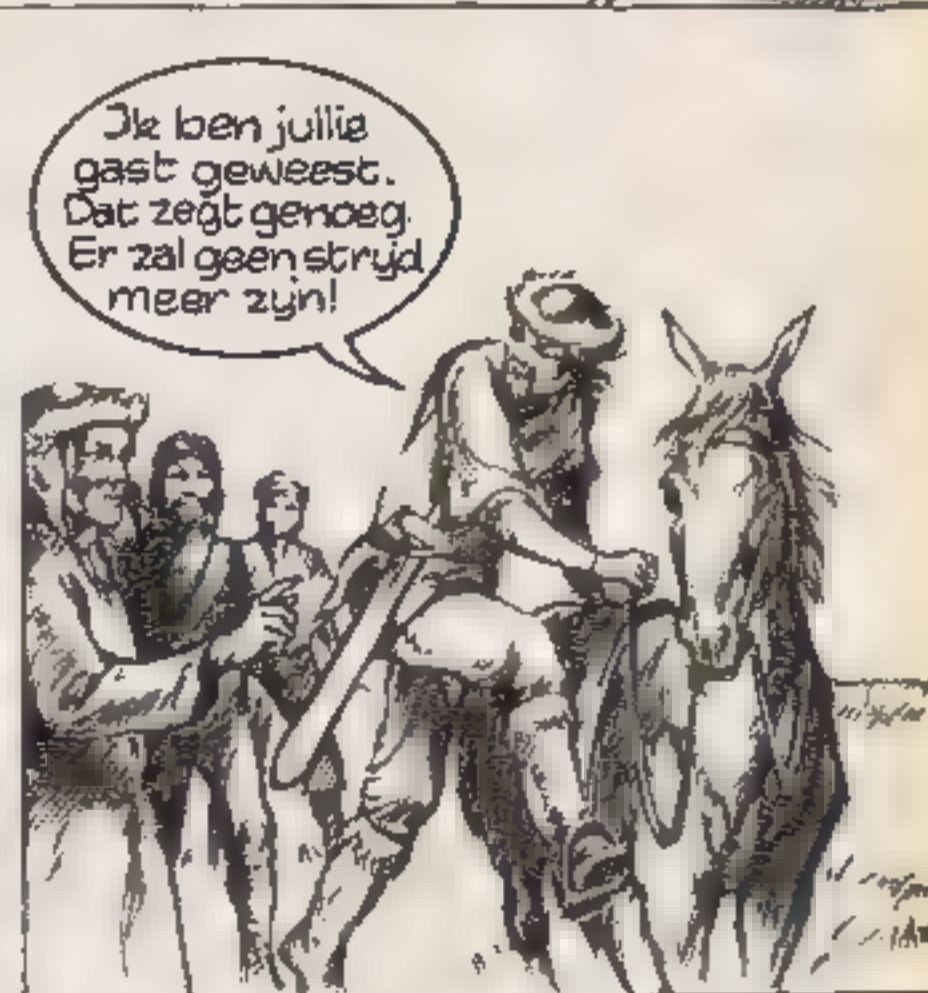 Ik ben jullie
gast geweest.
Dat zegt genoeg.
Er zal geen strijd
meer zijn!